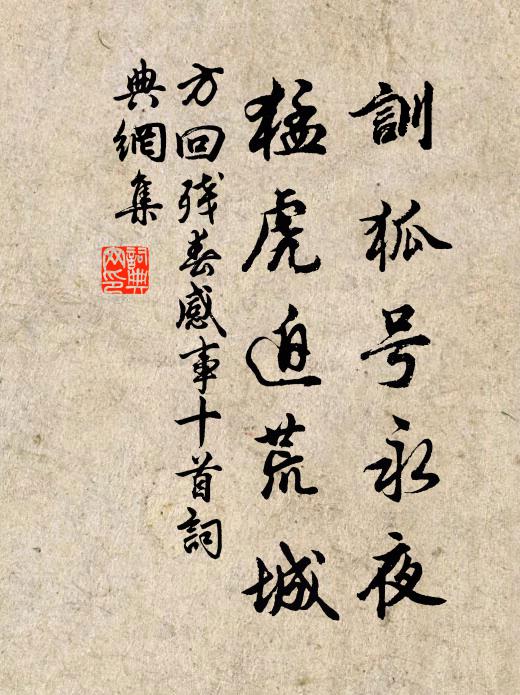 訓狐号永夜
猛虎迫荒城
方回残春感事十首詞
典網集
詞典